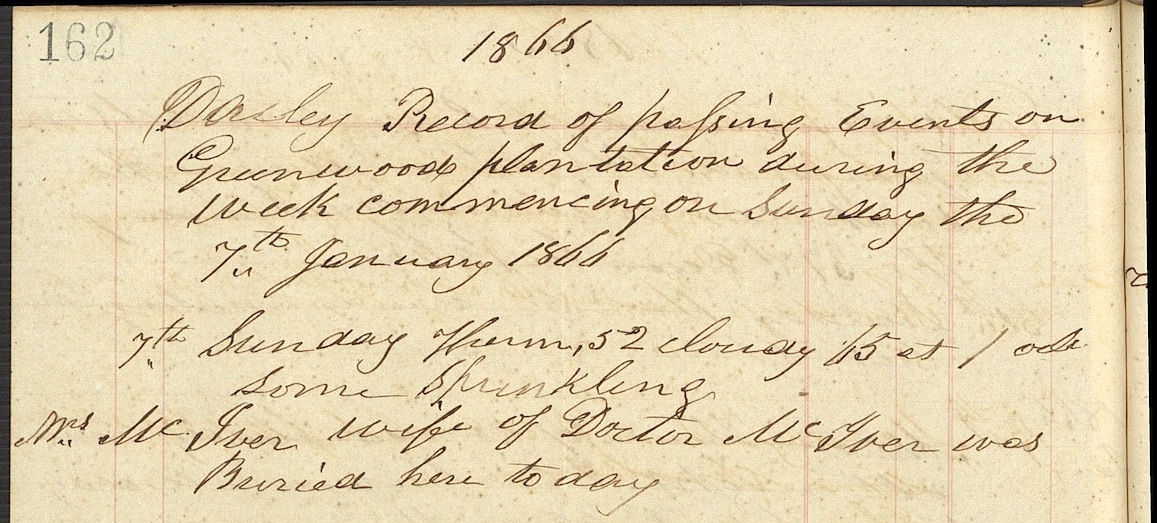 162
1866
Dailey Record of passing Events on
Greenwood plantation during the
week commencing on Sunday the
7th January 1866
7th Sunday Therm, 52 cloudy 65 at 1 oclk
some Sprinkling
Mrs McIver wife of Doctor McIver was
Buried here to day